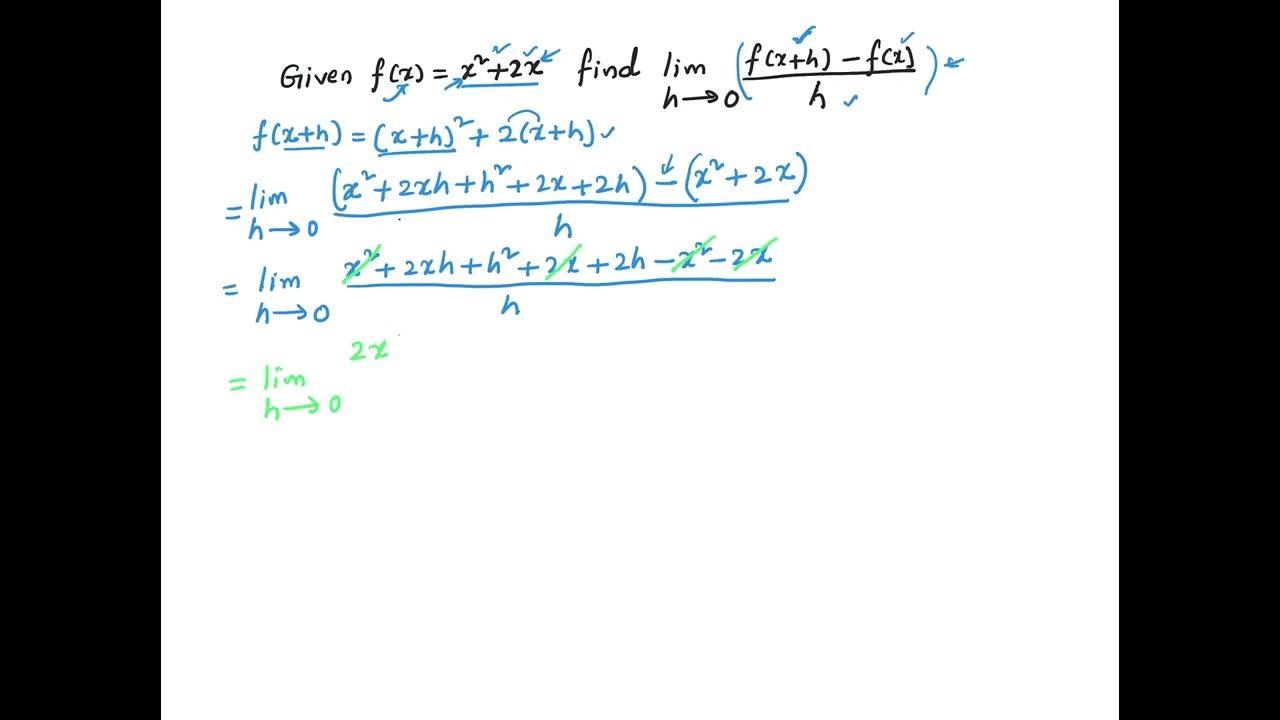 Given f(x) = x² + 2x find lim h→0 (f(x+h) − f(x) / h)
f(x+h) = (x+h)² + 2(x+h)
= lim h→0 (x² + 2xh + h² + 2x + 2h) − (x² + 2x) / h
= lim h→0 x² + 2xh + h² + 2x + 2h − x² − 2x / h
= lim h→0 2x